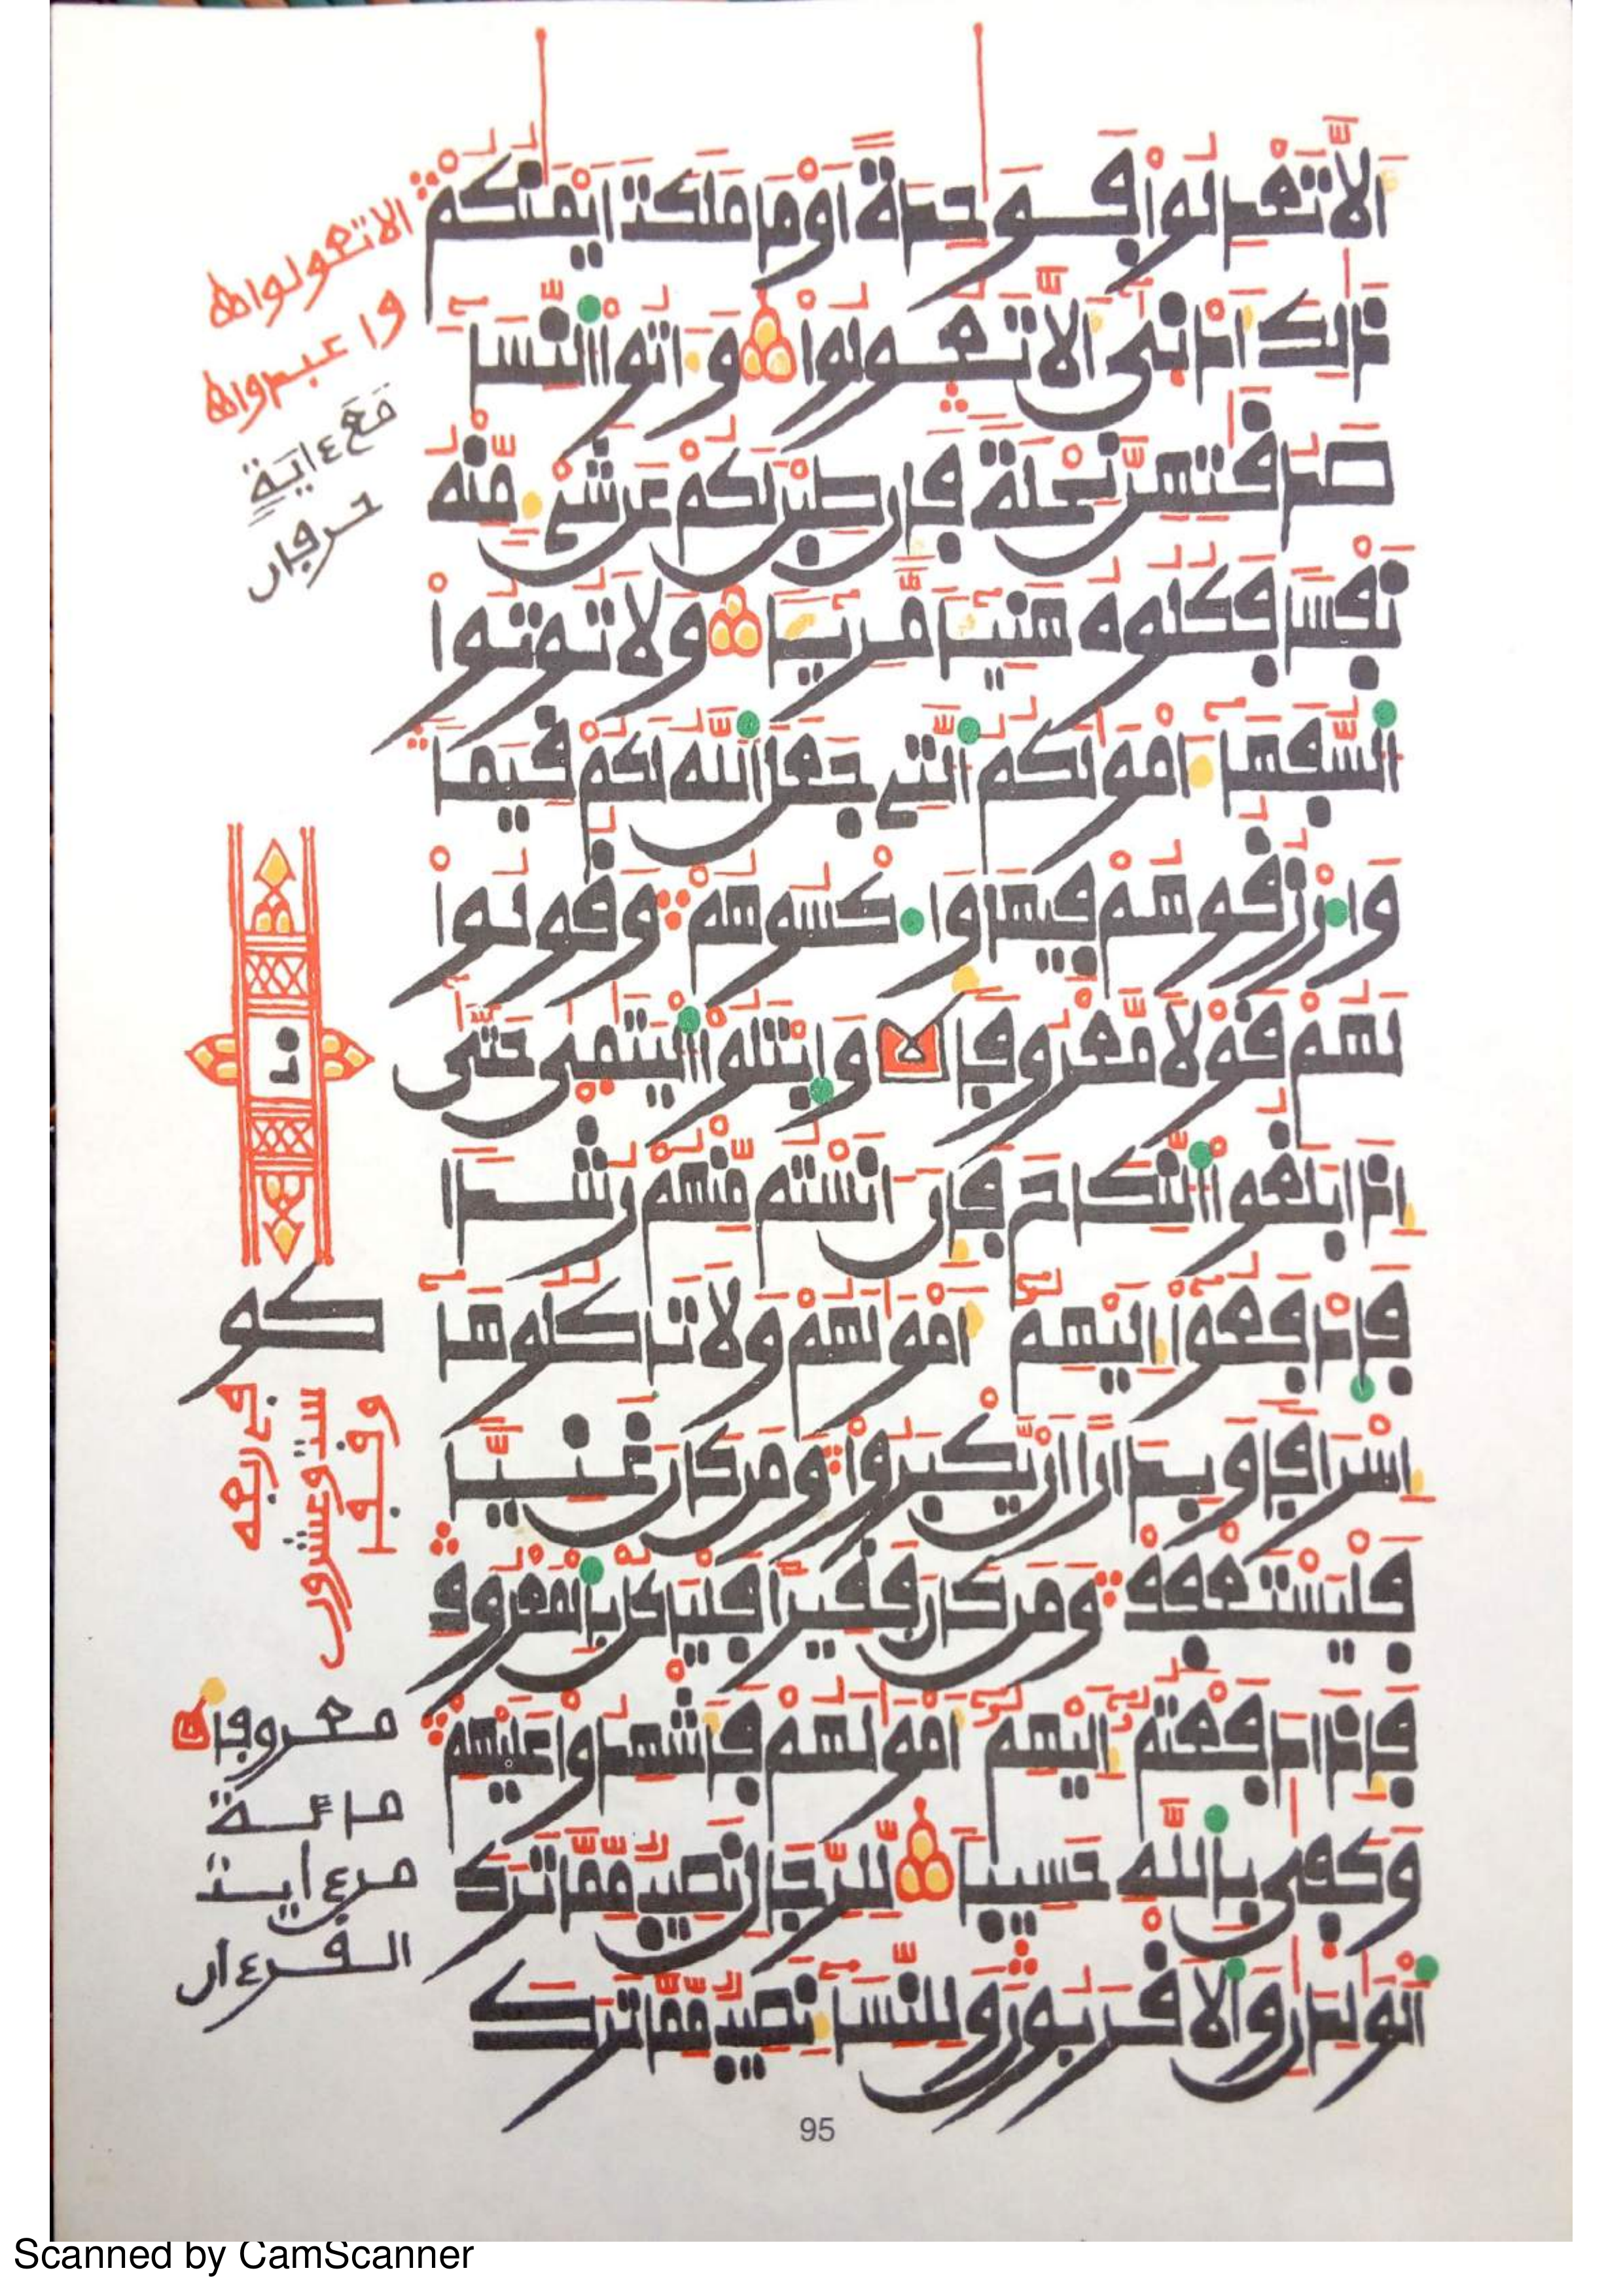 أَلَّا تَعْدِلُواْ فَوَٰحِدَةً أَوْ مَا مَلَكَتَ اَيْمَٰنُكُمْ
ذَٰلِكَ أَدْنَىٰ أَلَّا تَعُولُواْ وَءَاتُواْ اُلنِّسَآءَ
صَدُقَٰتِهِنَّ نِحْلَةً فَإِن طِبْنَ لَكُمْ عَن شَےْءٍ مِّنْهُ
نَفْساً فَكُلُوهُ هَنِيٓـٔاً مَّرِيٓـٔاً وَلَا تُوتُواْ
اُلسُّفَهَآءَ امْوَٰلَكُمُ اُلَّتِے جَعَلَ اَللَّهُ لَكُمْ قِيَماً
وَارْزُقُوهُمْ فِيهَا وَاكْسُوهُمْ وَقُولُواْ
لَهُمْ قَوْلًا مَّعْرُوفاً وَابْتَلُواْ اُلْيَتَٰمَىٰ حَتَّىٰٓ
إِذَا بَلَغُواْ اُلنِّكَاحَ فَإِنَ اٰنَسْتُم مِّنْهُمْ رُشْداً
فَادْفَعُوٓاْ إِلَيْهِمُۥٓ أَمْوَٰلَهُمْ وَلَا تَاكُلُوهَآ
إِسْرَافاً وَبِدَاراً أَنْ يَّكْبَرُواْ وَمَن كَانَ غَنِيّاً
فَلْيَسْتَعْفِفْ وَمَن كَانَ فَقِيراً فَلْيَاكُلْ بِالْمَعْرُوفِ
فَإِذَا دَفَعْتُمُۥٓ إِلَيْهِمُۥٓ أَمْوَٰلَهُمْ فَأَشْهِدُواْ عَلَيْهِمْ
وَكَفَىٰ بِاللَّهِ حَسِيباً لِّلرِّجَالِ نَصِيبٌ مِّمَّا تَرَكَ
اَلْوَٰلِدَٰنِ وَالَاقْرَبُونَ وَلِلنِّسَآءِ نَصِيبٌ مِّمَّا تَرَكَ
الا تعولوا ه
وا عبدوا ه
مَعَ ءايَةٍ
حرفان
كو
ستة وعشرون
معروفا
مائة
من ءاية
القرءان
95
Scanned by CamScanner